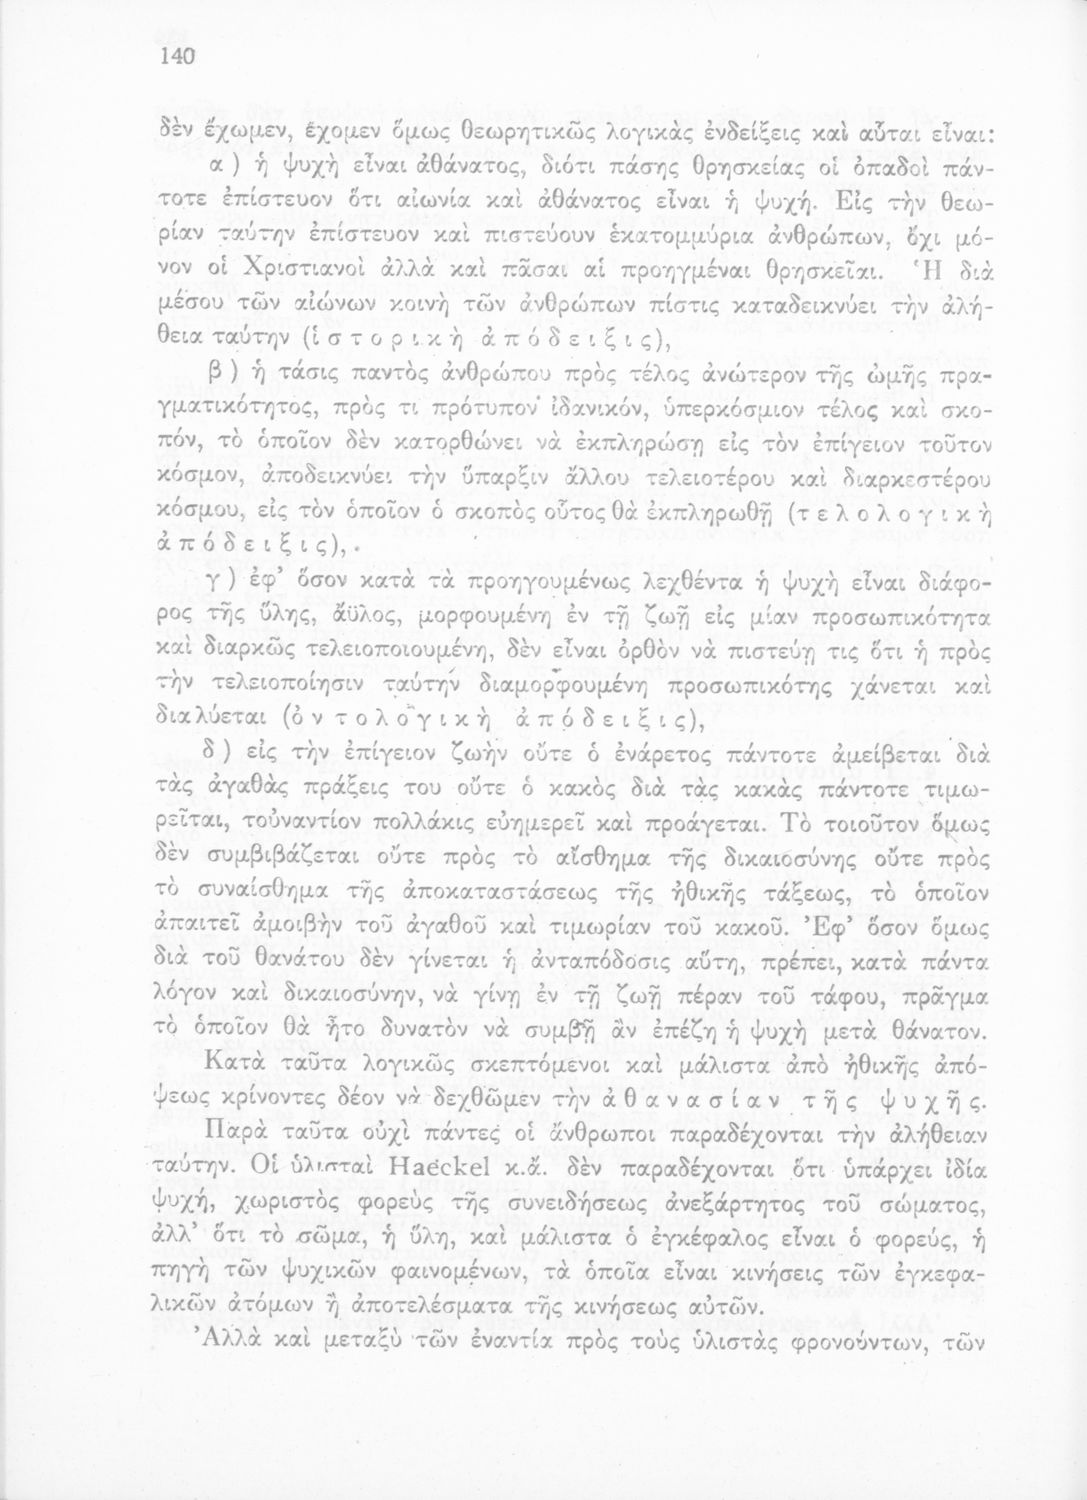 140
δὲν ἔχωμεν, ἔχομεν ὅμως θεωρητικῶς λογικὰς ἐνδείξεις καὶ αὗται εἶναι:
α) ἡ ψυχὴ εἶναι ἀθάνατος, διότι πάσης θρησκείας οἱ ὀπαδοὶ πάν-
τοτε ἐπίστευον ὅτι αἰωνία καὶ ἀθάνατος εἶναι ἡ ψυχή. Εἰς τὴν θεω-
ρίαν ταύτην ἐπίστευον καὶ πιστεύουν ἑκατομμύρια ἀνθρώπων, ὄχι μό-
νον οἱ Χριστιανοὶ ἀλλὰ καὶ πᾶσαι αἱ προηγμέναι θρησκεῖαι. Ἡ διὰ
μέσου τῶν αἰώνων κοινὴ τῶν ἀνθρώπων πίστις καταδεικνύει τὴν ἀλή-
θεια ταύτην (ἱστορικὴ ἀπόδειξις),
β) ἡ τάσις παντὸς ἀνθρώπου πρὸς τέλος ἀνώτερον τῆς ὠμῆς πρα-
γματικότητος, πρὸς τι πρότυπον ἰδανικόν, ὑπερκόσμιον τέλος καὶ σκο-
πόν, τὸ ὁποῖον δὲν κατορθώνει νὰ ἐκπληρώσῃ εἰς τὸν ἐπίγειον τοῦτον
κόσμον, ἀποδεικνύει τὴν ὕπαρξιν ἄλλου τελειοτέρου καὶ διαρκεστέρου
κόσμου, εἰς τὸν ὁποῖον ὁ σκοπὸς οὗτος θὰ ἐκπληρωθῇ (τελολογικὴ
ἀπόδειξις),
γ) ἐφ’ ὅσον κατὰ τὰ προηγουμένως λεχθέντα ἡ ψυχὴ εἶναι διάφο-
ρος τῆς ὕλης, ἄϋλος, μορφουμένη ἐν τῇ ζωῇ εἰς μίαν προσωπικότητα
καὶ διαρκῶς τελειοποιουμένη, δὲν εἶναι ὀρθὸν νὰ πιστεύῃ τις ὅτι ἡ πρὸς
τὴν τελειοποίησιν ταύτην διαμορφουμένη προσωπικότης χάνεται καὶ
διαλύεται (ὀντολογικὴ ἀπόδειξις),
δ) εἰς τὴν ἐπίγειον ζωὴν οὔτε ὁ ἐνάρετος πάντοτε ἀμείβεται διὰ
τὰς ἀγαθὰς πράξεις του οὔτε ὁ κακὸς διὰ τὰς κακὰς πάντοτε τιμω-
ρεῖται, τοὐναντίον πολλάκις εὐημερεῖ καὶ προάγεται. Τὸ τοιοῦτον ὅμως
δὲν συμβιβάζεται οὔτε πρὸς τὸ αἴσθημα τῆς δικαιοσύνης οὔτε πρὸς
τὸ συναίσθημα τῆς ἀποκαταστάσεως τῆς ἠθικῆς τάξεως, τὸ ὁποῖον
ἀπαιτεῖ ἀμοιβὴν τοῦ ἀγαθοῦ καὶ τιμωρίαν τοῦ κακοῦ. Ἐφ’ ὅσον ὅμως
διὰ τοῦ θανάτου δὲν γίνεται ἡ ἀνταπόδοσις αὕτη, πρέπει, κατὰ πάντα
λόγον καὶ δικαιοσύνην, νὰ γίνῃ ἐν τῇ ζωῇ πέραν τοῦ τάφου, πρᾶγμα
τὸ ὁποῖον θὰ ἦτο δυνατὸν νὰ συμβῇ ἂν ἐπέζη ἡ ψυχὴ μετὰ θάνατον.
Κατὰ ταῦτα λογικῶς σκεπτόμενοι καὶ μάλιστα ἀπὸ ἠθικῆς ἀπό-
ψεως κρίνοντες δέον νὰ δεχθῶμεν τὴν ἀθανασίαν τῆς ψυχῆς.
Παρὰ ταῦτα οὐχὶ πάντες οἱ ἄνθρωποι παραδέχονται τὴν ἀλήθειαν
ταύτην. Οἱ ὑλισταὶ Haeckel κ.ἄ. δὲν παραδέχονται ὅτι ὑπάρχει ἰδία
ψυχή, χωριστὸς φορεὺς τῆς συνειδήσεως ἀνεξάρτητος τοῦ σώματος,
ἀλλ’ ὅτι τὸ σῶμα, ἡ ὕλη, καὶ μάλιστα ὁ ἐγκέφαλος εἶναι ὁ φορεύς, ἡ
πηγὴ τῶν ψυχικῶν φαινομένων, τὰ ὁποῖα εἶναι κινήσεις τῶν ἐγκεφα-
λικῶν ἀτόμων ἢ ἀποτελέσματα τῆς κινήσεως αὐτῶν.
Ἀλλὰ καὶ μεταξὺ τῶν ἐναντία πρὸς τοὺς ὑλιστὰς φρονούντων, τῶν